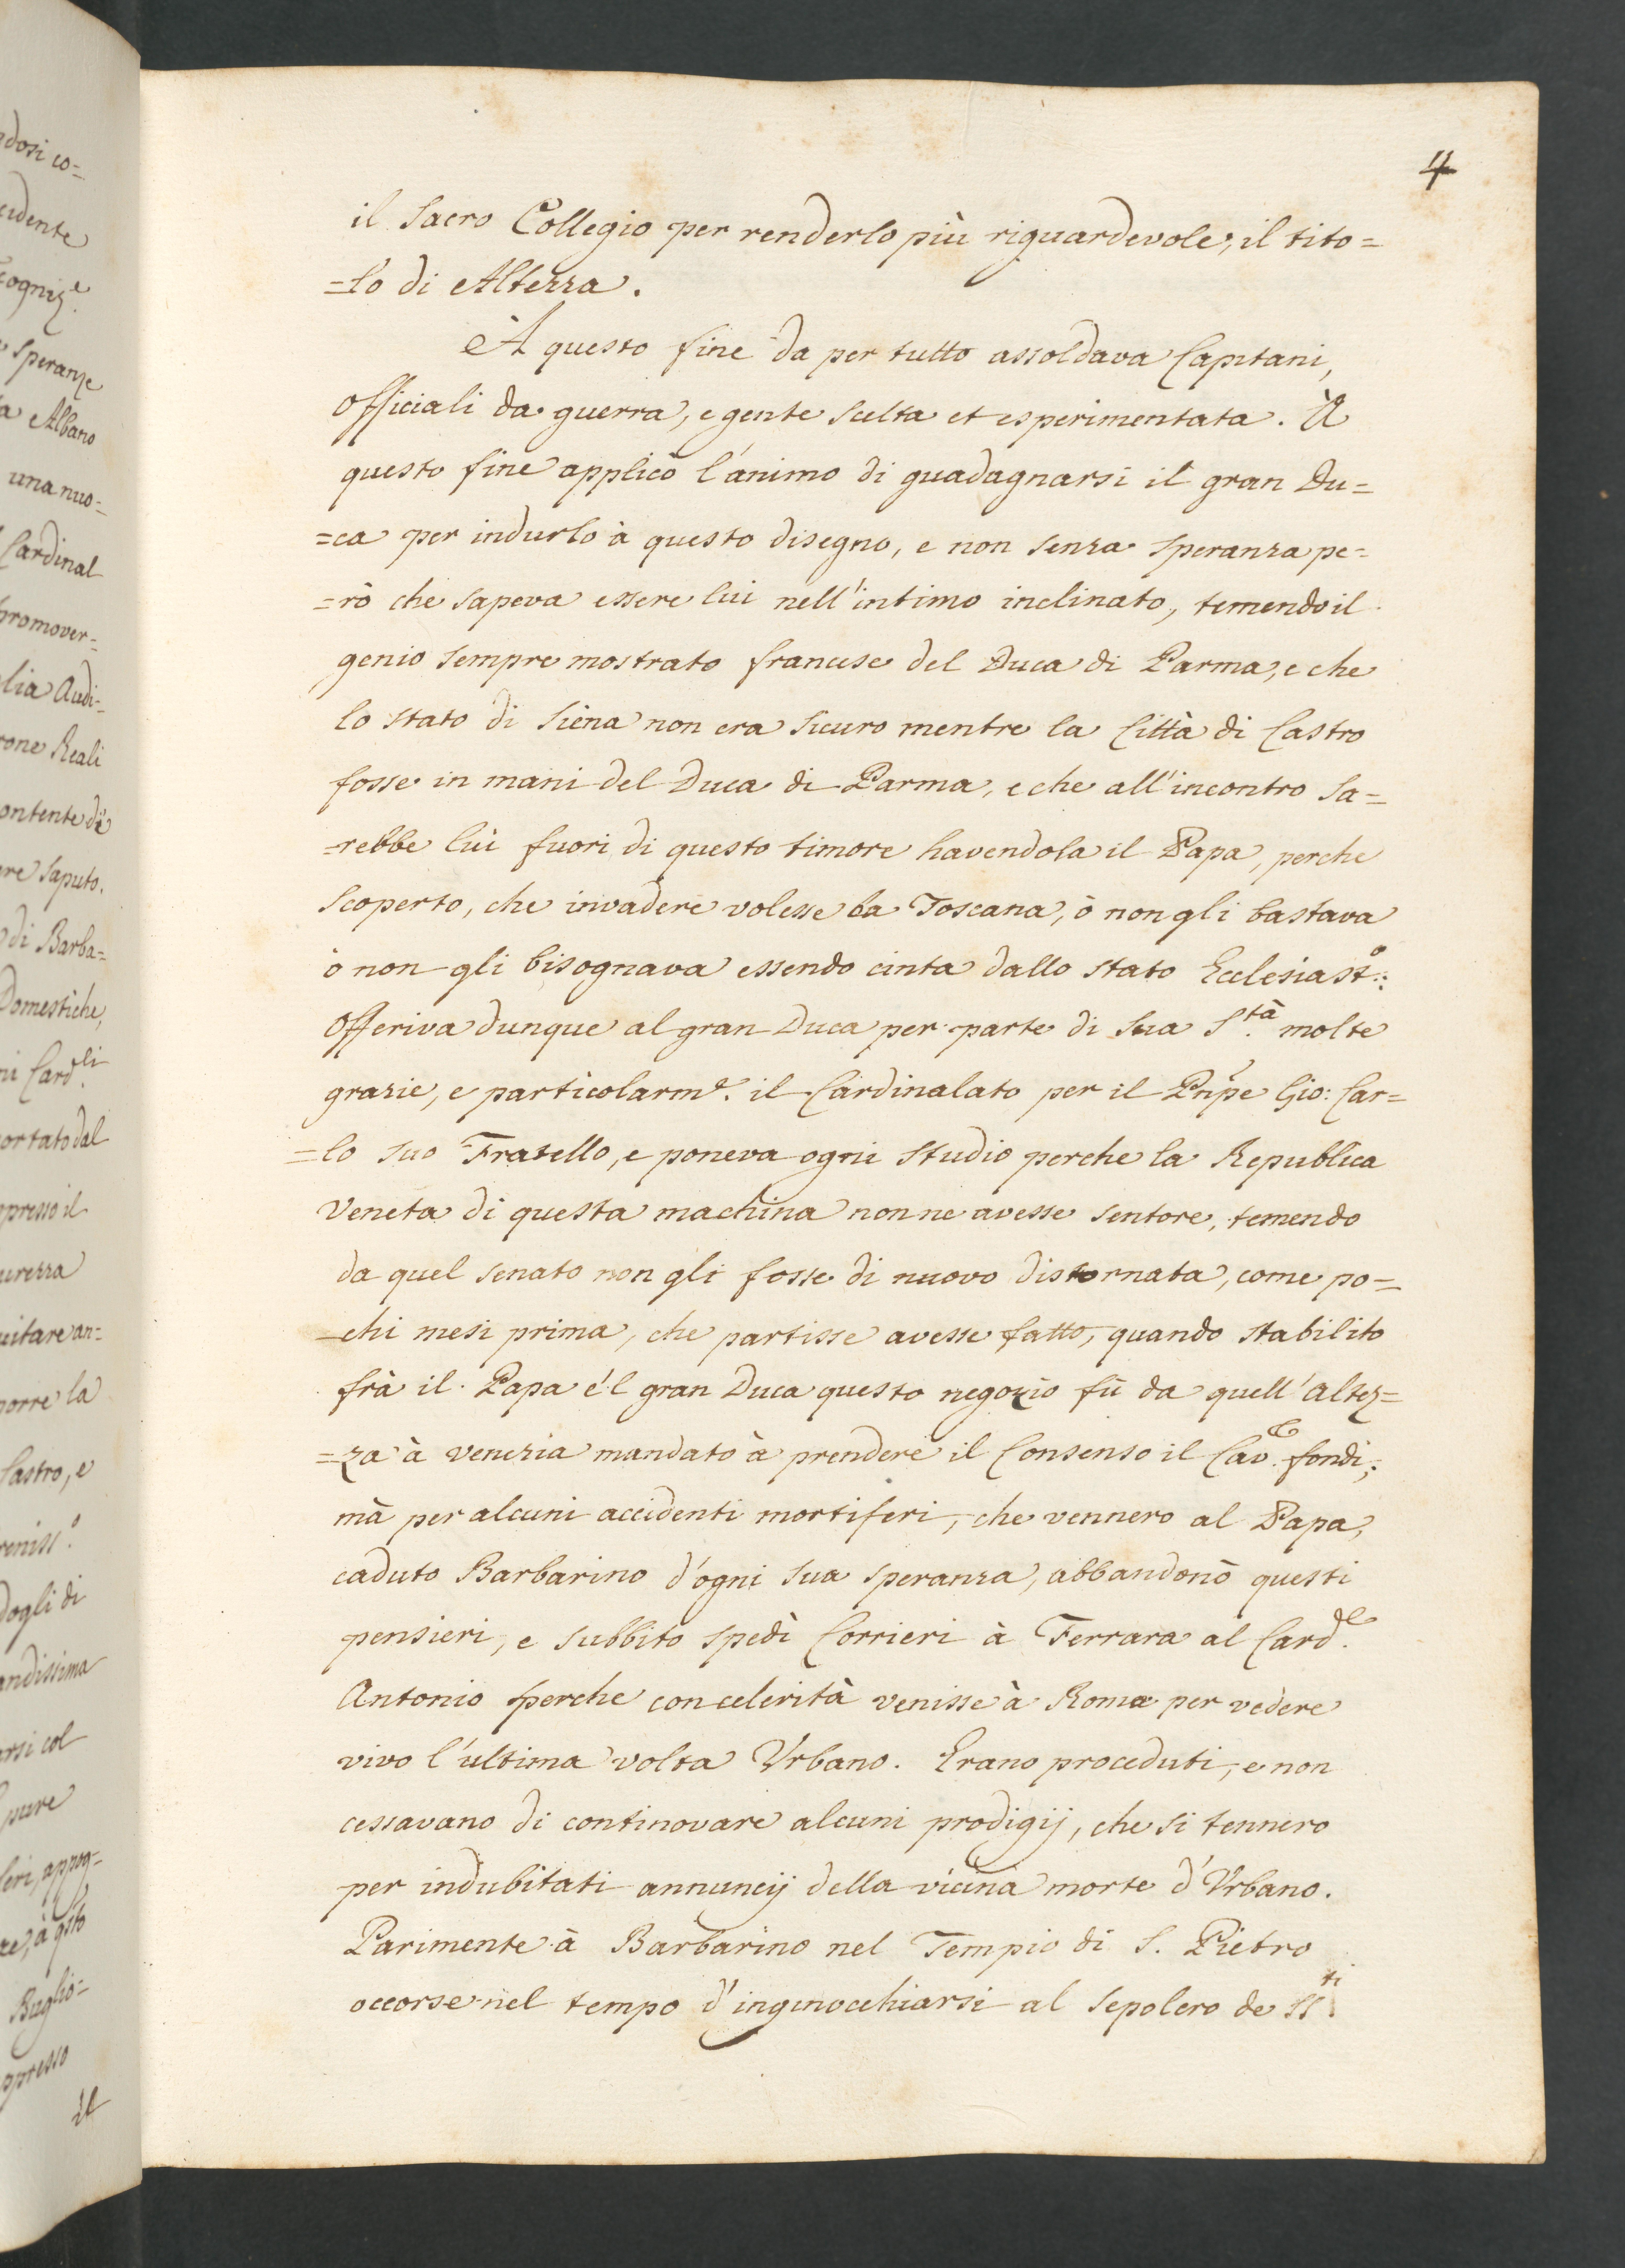 4
il Sacro Collegio per renderlo più riguardevole, il tito=
=lo di Altezza.
A questo fine da per tutto assoldava Capitani,
Officiali da guerra, e gente scelta et esperimentata. À
questo fine applicò l'animo di guadagnarsi il gran Du=
=ca per indurlo à questo disegno, e non senza speranza pe=
=rò che sapeva essere lui nell'intimo inclinato, temendo il
genio sempre mostrato francese del Duca di Parma, e che
lo stato di Siena non era sicuro mentre la Città di Castro
fosse in mani del Duca di Parma, e che all'incontro sa=
=rebbe lui fuori di questo timore havendola il Papa, perche
scoperto, che invadere volesse la Toscana, ò non gli bastava
ò non gli bisognava essendo cinta dallo stato Ecclesiast.º:
Offeriva dunque al gran Duca per parte di Sua S.tà molte
grazie, e particolarm.e il Cardinalato per il Pnpe Gio: Car=
=lo suo Fratello, e poneva ogni studio perche la Republica
Veneta di questa machina non ne avesse sentore, temendo
da quel senato non gli fosse di nuovo distornata, come po=
=chi mesi prima, che partisse avesse fatto, quando stabilito
frà il Papa é'l gran Duca questo negozio fù da quell'Altez=
=za à Venezia mandato à prendere il Consenso il Cav.e fondi;
mà per alcuni accidenti mortiferi, che vennero al Papa,
caduto Barbarino d'ogni sua speranza, abbandonò questi
pensieri, e subbito spedì Corrieri à Ferrara al Card.le
Antonio perche con celerità venisse à Roma per vedere
vivo l'ultima volta Vrbano. Erano proceduti, e non
cessavano di continovare alcuni prodigij, che si tennero
per indubitati annuncij della vicina morte d'Vrbano.
Parimente à Barbarino nel Tempio di S. Pietro
occorse nel tempo d'inginocchiarsi al Sepolcro de SS.ti